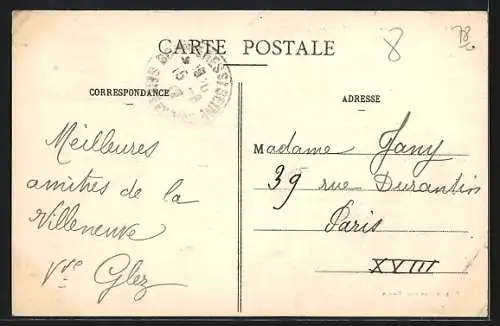 CARTE POSTALE
8
78
CORRESPONDANCE
ADRESSE
Meilleures
amitiés de la
Villeneuve
Vve Glez
Madame Jany
39 rue Durantin
Paris
XVIII